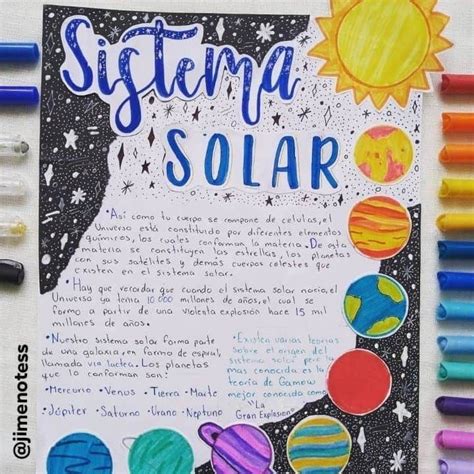 Sistema
SOLAR
•Así como tu cuerpo se compone de células, el
Universo está constituido por diferentes elementos
químicos, los cuales conforman la materia. De esta
materia se constituyen las estrellas, los planetas
con sus satélites y demás cuerpos celestes que
existen en el sistema solar.
•Hay que recordar que cuando el sistema solar nacio, el
Universo ya tenia 10 000 millones de años, el cual se
formo a partir de una violenta explosión hace 15 mil
millones de años.
•Nuestro sistema solar forma parte
de una galaxia, en forma de espiral,
llamada via lactea. Los planetas
que lo conforman son:
•Mercurio •Venus •Tierra •Marte
•Júpiter •Saturno •Urano •Neptuno
•Existen varias teorias
sobre el origen del
sistema solar, pero la
mas conocida es la
teoría de Gamow
mejor conocida como
"La
Gran Explosion"
@jimenotess